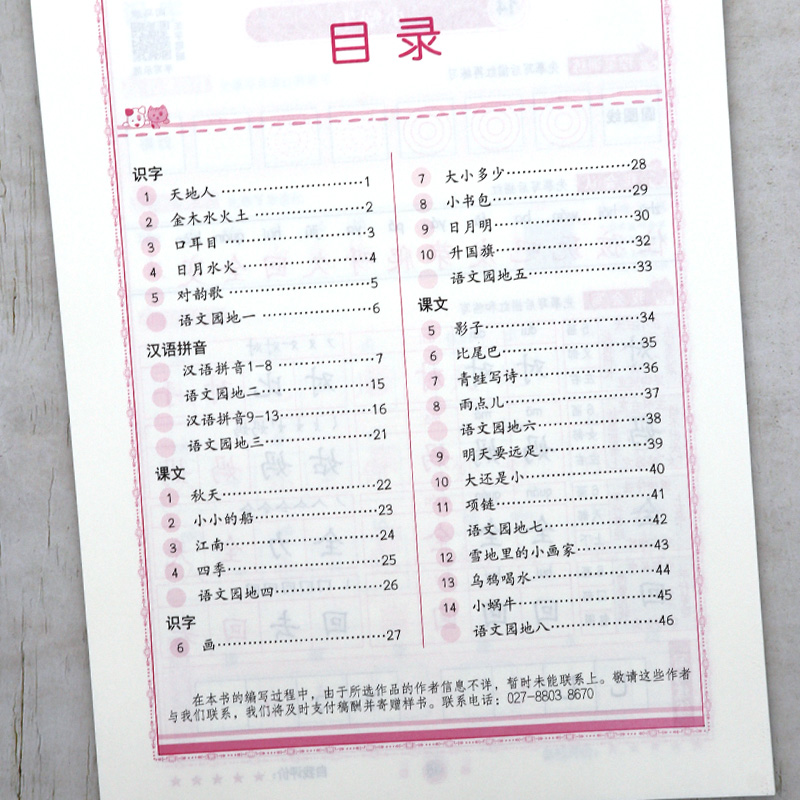 目录
识字
1 天地人 1
2 金木水火土 2
3 口耳目 3
4 日月水火 4
5 对韵歌 5
语文园地一 6
汉语拼音
汉语拼音1-8 7
语文园地二 15
汉语拼音9-13 16
语文园地三 21
课文
1 秋天 22
2 小小的船 23
3 江南 24
4 四季 25
语文园地四 26
识字
6 画 27
7 大小多少 28
8 小书包 29
9 日月明 30
10 升国旗 32
语文园地五 33
课文
5 影子 34
6 比尾巴 35
7 青蛙写诗 36
8 雨点儿 37
语文园地六 38
9 明天要远足 39
10 大还是小 40
11 项链 41
语文园地七 42
12 雪地里的小画家 43
13 乌鸦喝水 44
14 小蜗牛 45
语文园地八 46
在本书的编写过程中，由于所选作品的作者信息不详，暂时未能联系上。敬请这些作者
与我们联系，我们将及时支付稿酬并寄赠样书。联系电话：027-8803 8670